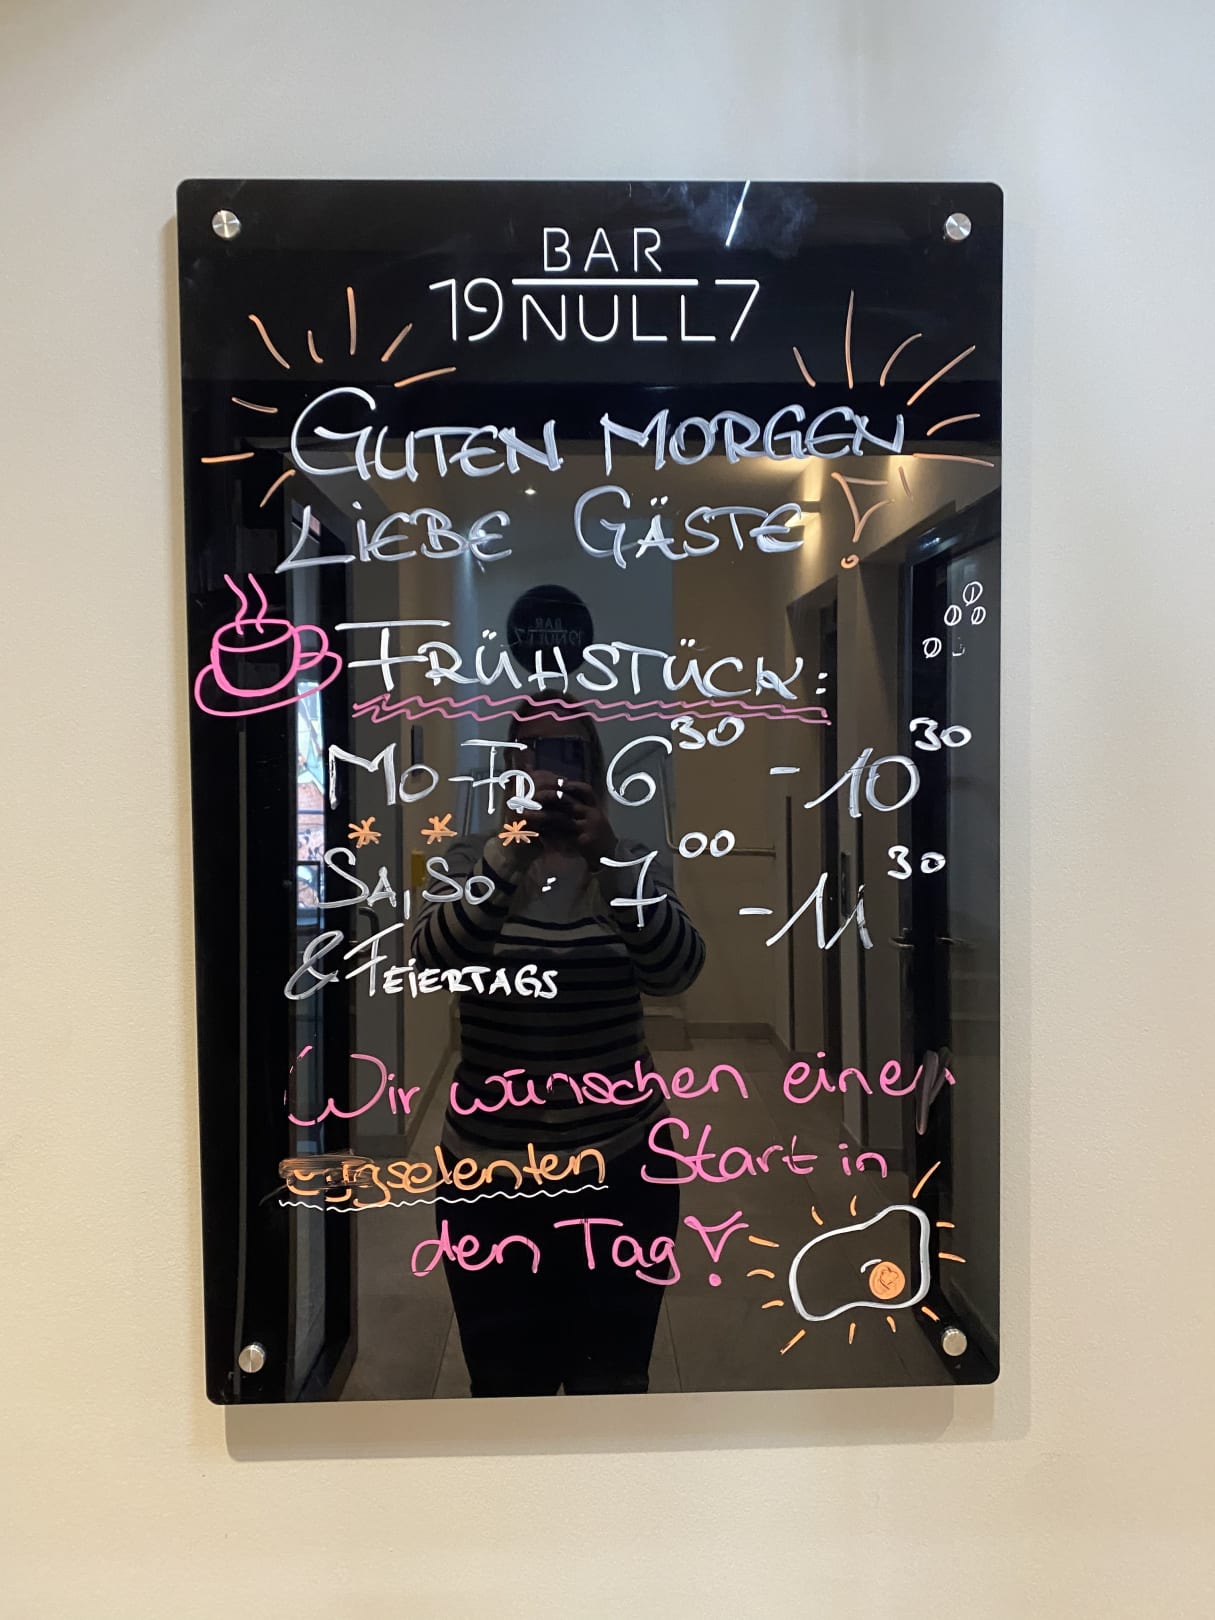 BAR
19NULL7
GUTEN MORGEN
LIEBE GÄSTE!
FRÜHSTÜCK:
MO-FR: 6³⁰ - 10³⁰
* * *
SA, SO : 7⁰⁰ - 11³⁰
& FEIERTAGS
Wir wünschen einen
Start in
den Tag!